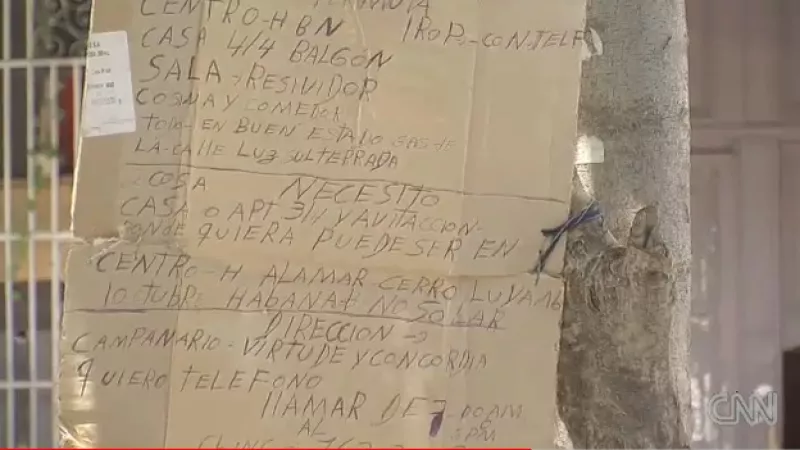 CENTRO-H BN
CASA 4/4 BALGON
SALA RESIVIDOR
COSINA Y COMEDOR
TODO EN BUEN ESTADO GAS DE
LA CALLE LUZ SULTERRADA
COSA NECESITO
CASA O APT 3/4 Y AVITACCION
DONDE QUIERA PUEDE SER EN
CENTRO-H ALAMAR-CERRO LUYANO
10 CTUBRE HABANA NO SOLAR
DIRECCION
CAMPANARIO-VIRTUDE Y CONCORDIA
QUIERO TELEFONO
LLAMAR DE 7-00 AM
AL PM
CNN